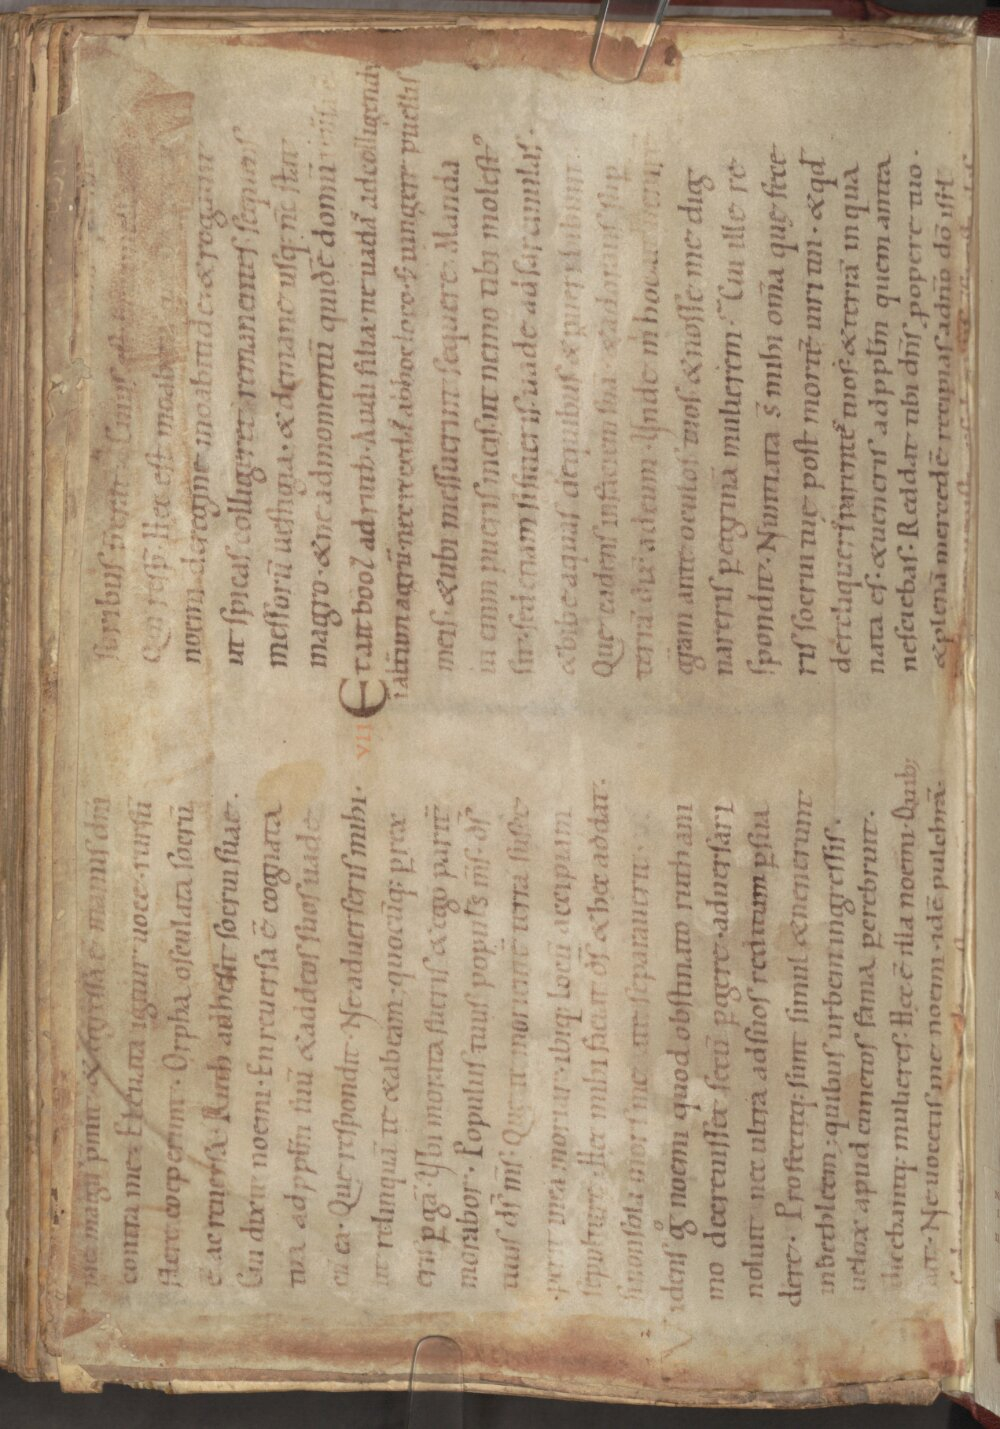 me magis pmit · & egressa e manus dñi
contra me · Eleuata igitur uoce · rursũ
flere coeperunt · Orpha osculata socrũ
ẽ ac reuersa · Ruth adhesit socrui suae .
Cui dixit noemi · En reuersa ẽ cognata
tua ad pp̃lm suũ & ad deos suos uade
cũ ea · Que respondit · Ne aduerseris mihi ·
ut relinquã te & abeam · quocũq; prex
eris pgã · Vbi morata fueris & ego parit̃
morabor · Populus tuus popul͛s m̃s · ds̃
tuus ds̃ m̃s · Que te morientẽ terra susce
perit in ea moriar · ibiq; locũ accipiam
sepulture · Hec mihi faciat ds̃ & hec addat ·
si non sola mors me & te separauerit ·
Videns g̊ noemi quod obstinato ruth ani
mo decreuisset secũ pgere · aduersari
noluit nec ultra ad suos reditum psua
dere · Profecteq; sunt simul & uenerunt
in bethleem · quibus urbem ingressis ·
uelox apud cunctos fama percrebruit ·
Dicebantq; mulieres · Hec ẽ illa noemi · Quib;
ait · Ne uocetis me noemi · idẽ pulchrã ·
soribus preerat · Cuius est
Qui resp̃ · Hec est moabitis
noemi · de regione moabitide · & rogauit
ut spicas colligeret remanentes sequens
messorũ uestigia · & de mane usq; nc̃ stat
in agro · & ne ad momentũ quidẽ domũ
VII Et ait bool ad ruth · Audi filia · ne uadas ad colligendũ
in altum agrũ · nec recedas ab hoc loco · s; iungere puellis
meis · & ubi messuerint sequere · Manda
ui enim pueris meis · ut nemo tibi molest᷒
sit · sed etiam si sitieris uade ad sarcinulas ·
& bibe aquas de quibus & pueri bibunt ·
Que cadens in faciem suã & adorans sup
terrã dix̃ ad eum · Vnde m̃ hoc ut inuenirẽ
gr̃am ante oculos tuos & nosse me dig
nareris pegrinã mulierem · Cui ille re
spondit · Nuntiata s̃ mihi om̃a quę fece
ris socrui tuę post mortẽ uiri tui · & qd̃
dereliqueris parentẽ tuos · & terrã in qua
nata es · & ueneris ad pp̃lm quem antea
nesciebas · Reddat tibi dñs p opere tuo ·
& plenã mercedẽ recipias a dño dõ isrl̃